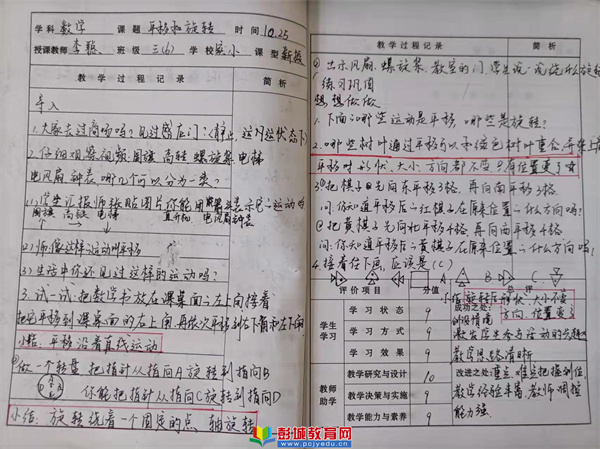 学科 数学 课题 平移和旋转 时间 10.25
授课教师 李 班级 三(6) 学校 小 课型 新授
教学过程记录 简析
导入
1.大家去过商场吗?见过感应门?(静止、这几运状态下)
2.仔细观察视频:国旗 高铁 螺旋桨 电梯
电风扇 钟表 哪几个可以分为一类?
(1)学生汇报师张贴图片你能用手来表示它的运动吗
国旗 高铁 电梯 直升机 电风扇 钟表
(2)师:像这样的运动叫平移
(3)生活中你还见过这样的运动吗?
3.试一试:把数学书放在课桌面的左上角接着
把它平移到课桌面的右上角再依次平移到右下角和左下角
小结:平移沿着直线运动
做一个转盘 把指针从指向A旋转到指向B
你能把指针从指向C旋转到指向D
小结:旋转绕着一个固定的点、轴旋转
教学过程记录 简析
出示风扇、螺旋桨、教室的门,学生说一说绕什么在旋转
练习巩固
想想做做
1.下面的哪些运动是平移,哪些是旋转?
2.哪些树叶通过平移可以和绿色树叶重合
平移时形状、大小、方向都不变只有位置变了
3.①把棋子先向东平移3格,再向南平移3格
问:你知道平移后的红棋子在原来位置的什么方向吗?
②把黄棋子先向北平移4格,再向南平移4格
问:你知道平移后的黄棋子在原来位置的什么方向吗?
4.接着往下画,应该是(C)
A B C
评价项目 分值 总评
小结旋转后形状、大小不变
方向、位置变了
学生学习
学习状态 9
学习方式 9
学习效果 9
教师助学
教学研究与设计 10
教学决策与实施 9
教学能力与素养 9
成功之处:
创设情境
激发学生参与活动的兴趣
教学思路清晰
改进之处:重点、难点把握到位
教学经验丰富,教师调控
能力强.
彭城教育网
www.pcjyedu.cn